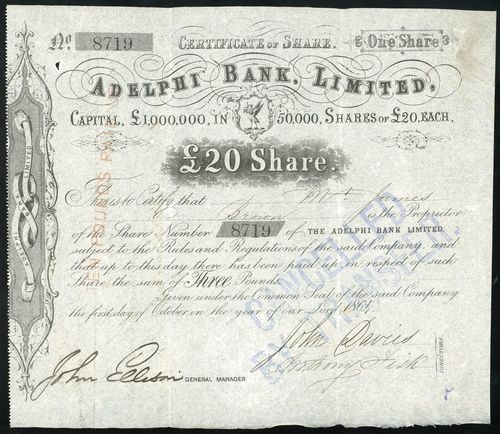 No 8719 CERTIFICATE OF SHARE. One Share
ADELPHI BANK, LIMITED.
CAPITAL, £1,000,000, IN 50,000, SHARES OF £20, EACH.
£20 Share.
This is to Certify that Mr James
Brown is the Proprietor
of the Share Number 8719 of THE ADELPHI BANK LIMITED
subject to the Rules and Regulations of the said Company, and
that up to this day there has been paid up in respect of such
Share the sum of Three Pounds.
Given under the Common Seal of the said Company
the first day of October, in the year of our Lord 1861.
John Davies
Anthony Fisk
DIRECTORS
John Ellison GENERAL MANAGER.
ADELPHI BANK LIMITED
POUNDS PA
CANCELLED